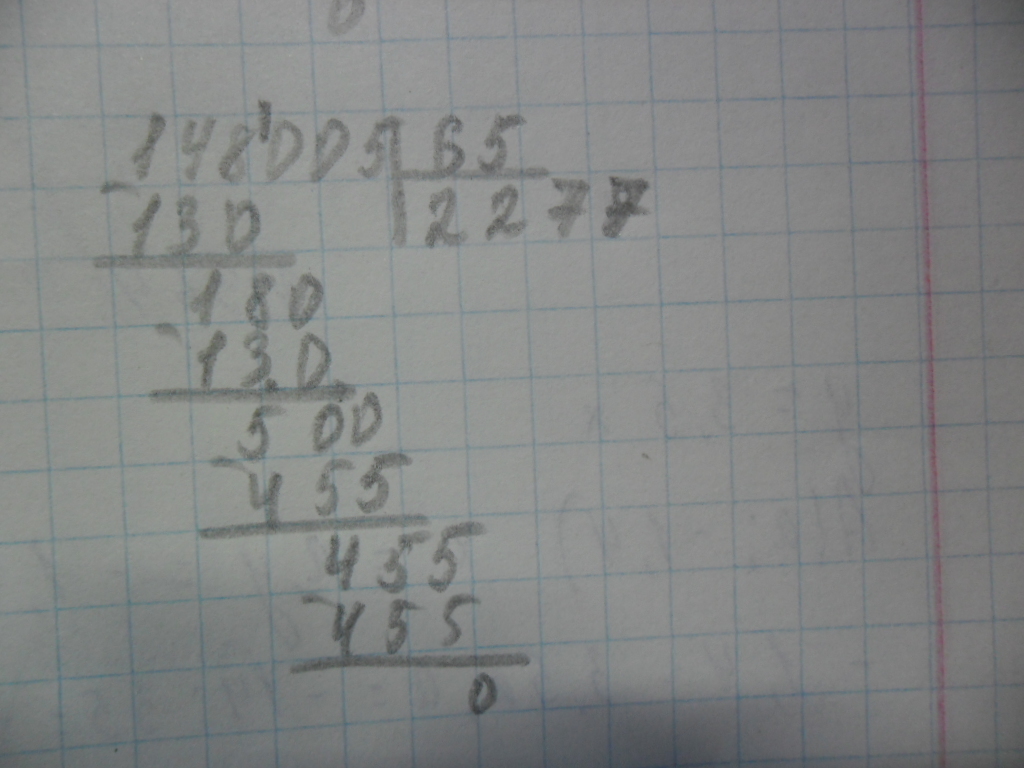 148005 65
130 2277
180
130
500
455
455
455
0